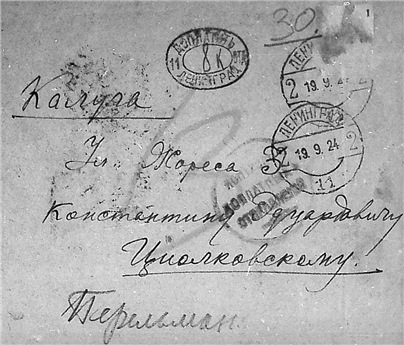 30.
1
ДОПЛАТИТЬ
8 К
ЛЕНИНГРАД
ЛЕНИН
2 19.9.24
ЛЕНИНГРАД
2 19.9.24 2
11
Калуга
Ул. Жореса 3
ДОПЛАТИТЬ
Константину Эдуардовичу
Циолковскому.
Перельман.